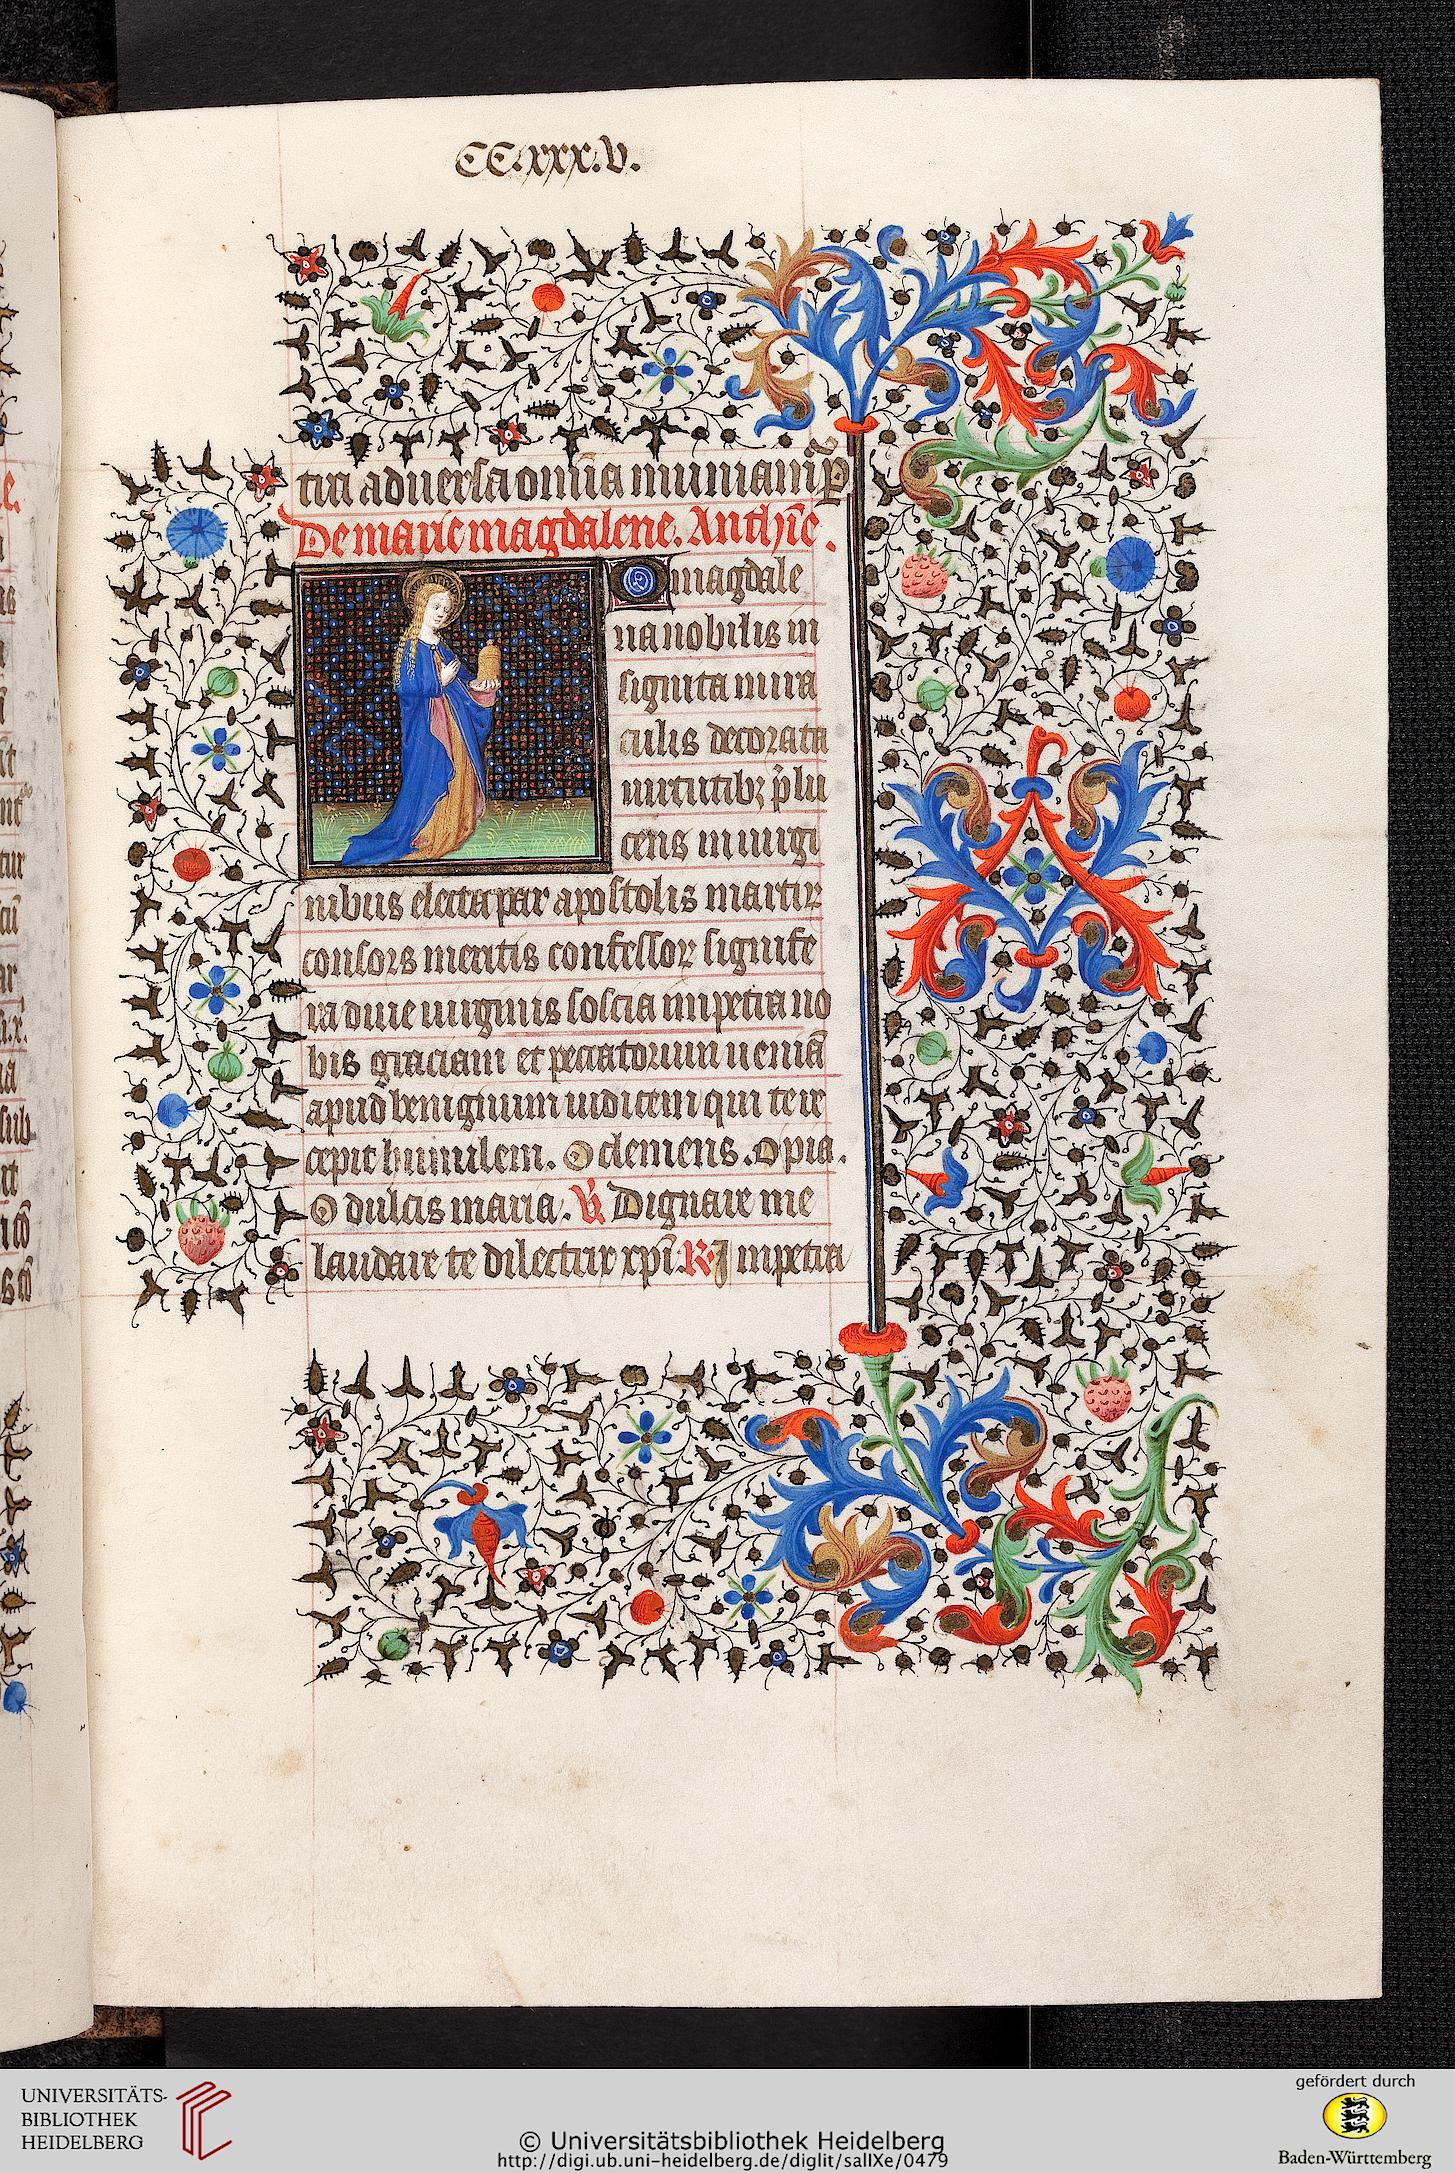 CC.xxx.V.
tua aduersa omīa muniam̄
De marie magdalene. Anthīe.
O magdale
na nobilis in
signita mira
culis decorata
uirtutibꝫ p̄lu
cens in uirgi
nibus electa par apostolis martirꝝ
consors meritis confessoꝝ signife
ra diue uirginis soscia impetra no
bis graciam et peccatorum ueniā
apud benignum iudicem qui te re
cepit humilem. O clemens. O pia.
O dulcis maria. ℣ Dignare me
laudare te dilectrix xp̄i. ℟ Impetra
UNIVERSITÄTS-
BIBLIOTHEK
HEIDELBERG
© Universitätsbibliothek Heidelberg
http://digi.ub.uni-heidelberg.de/diglit/salIXe/0479
gefördert durch
Baden-Württemberg